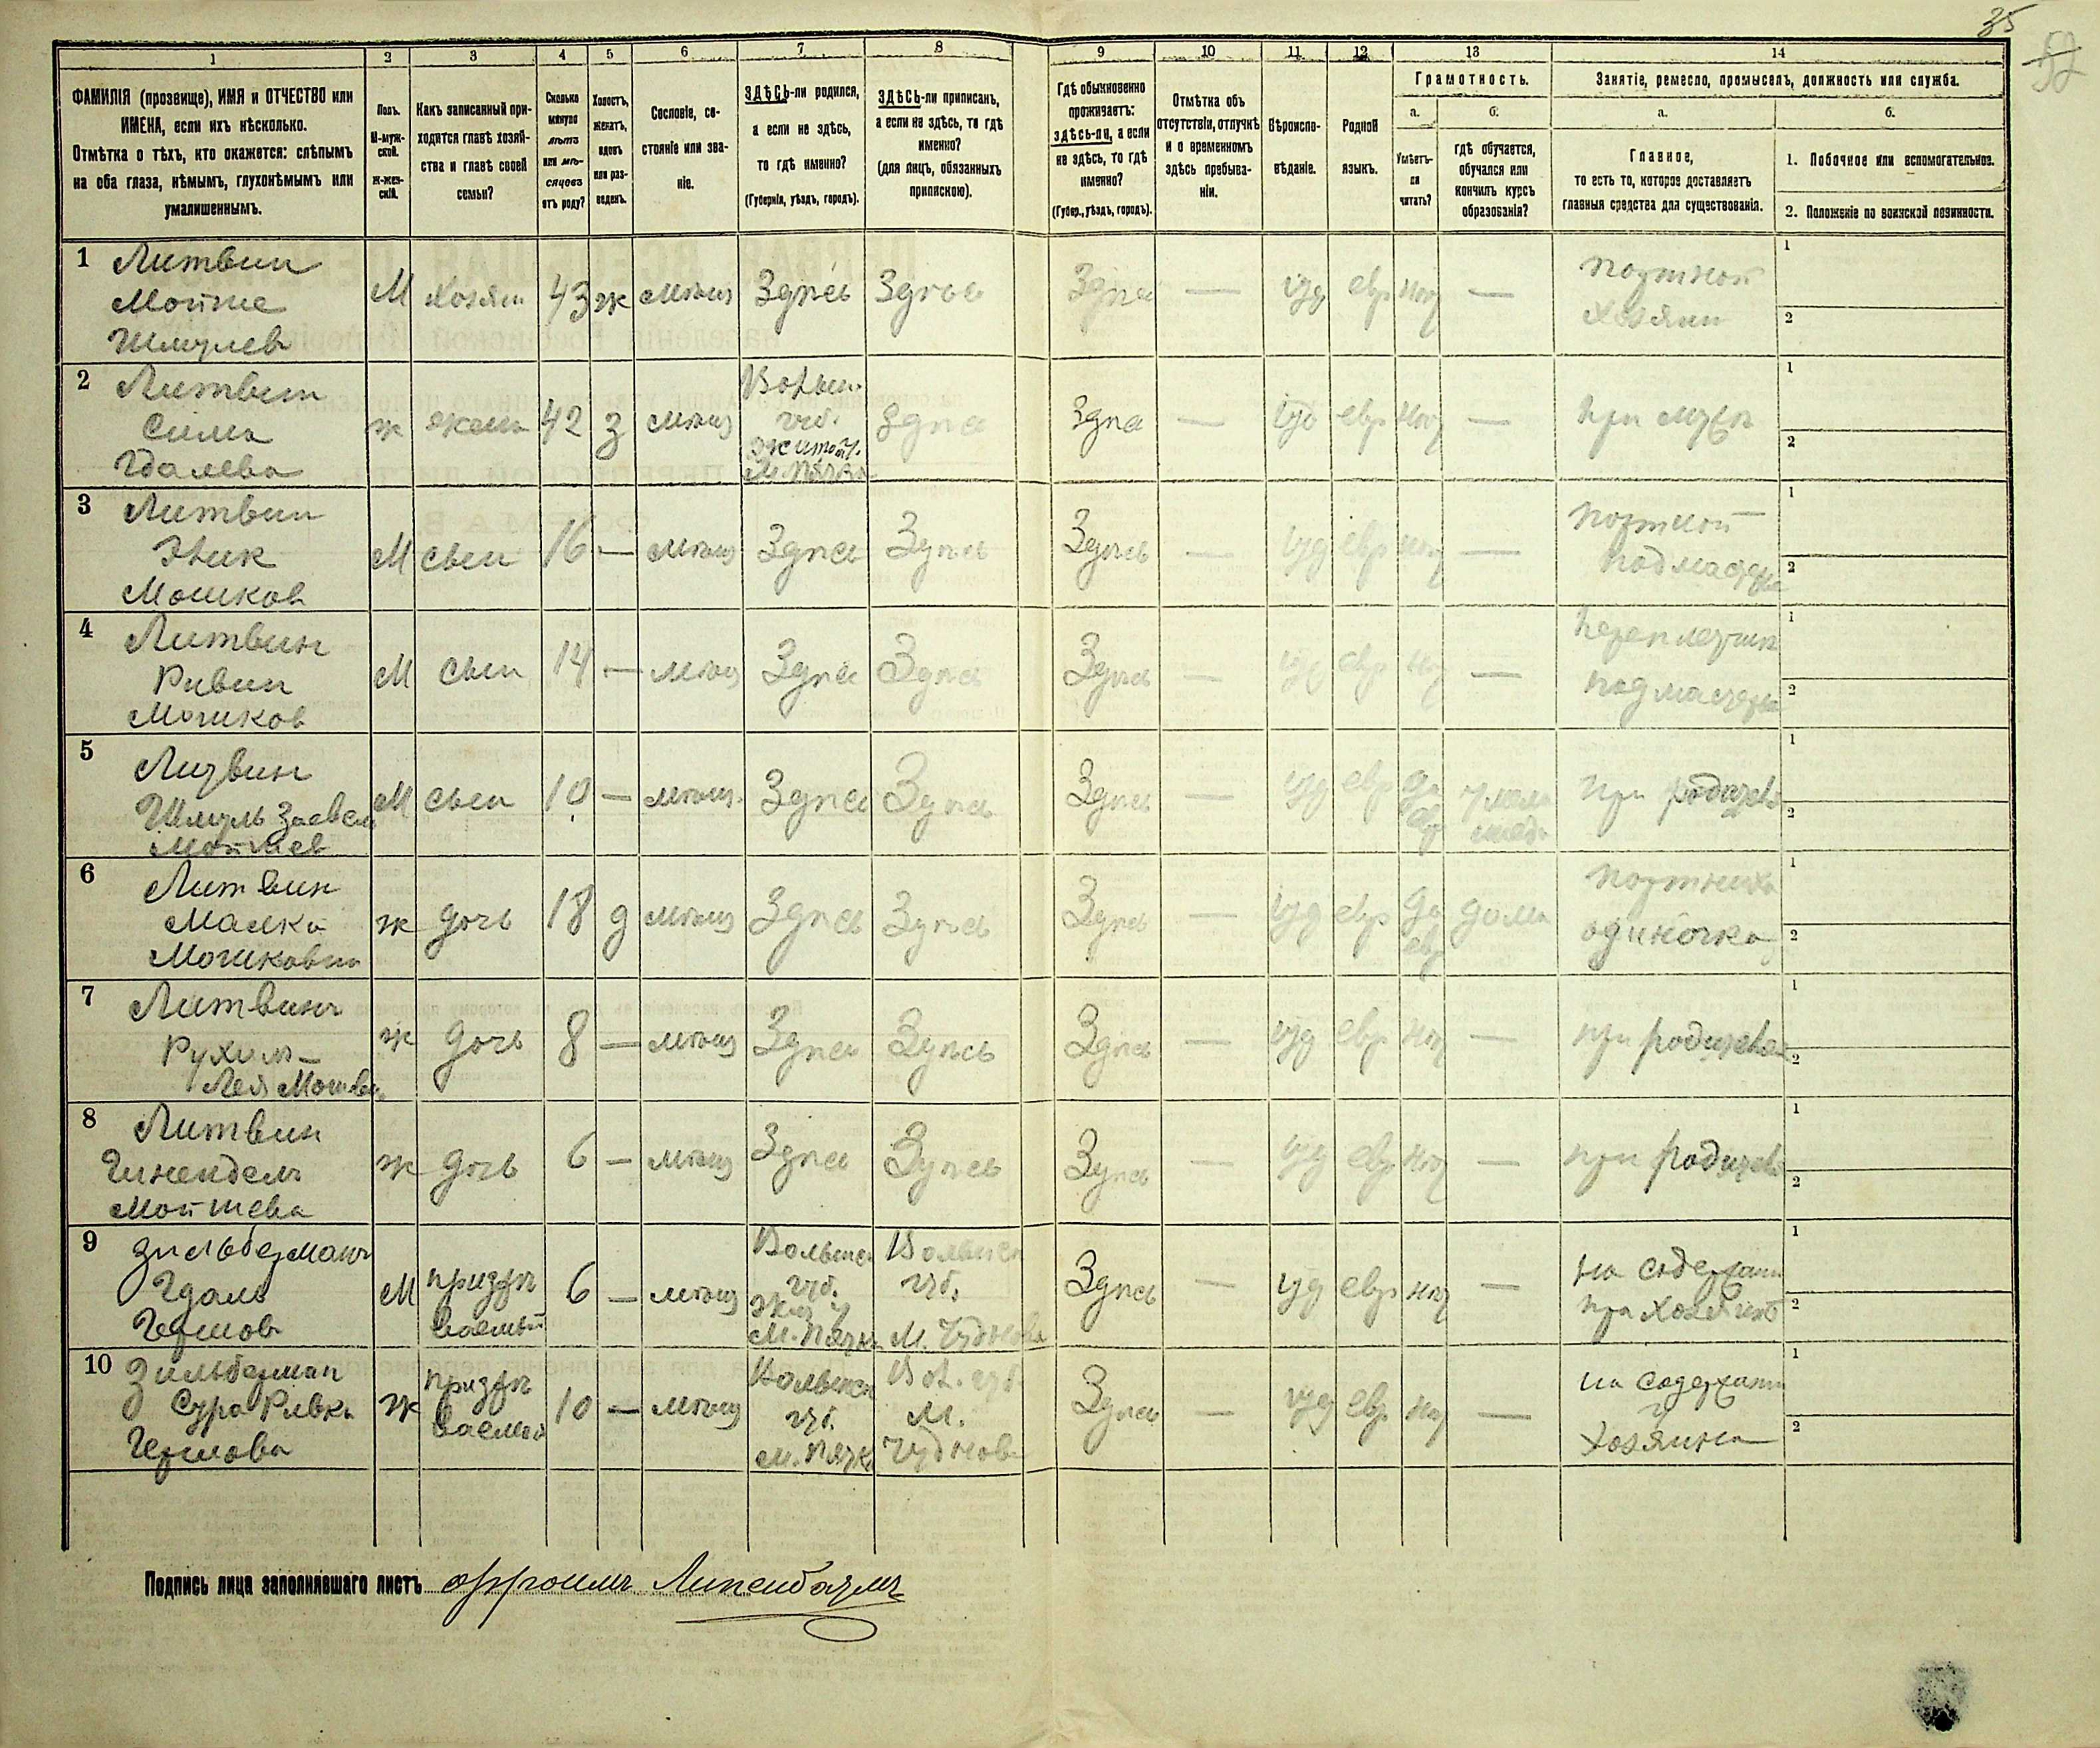 35
52
1
2
3
4
5
6
7
8
9
10
11
12
13
14
ФАМИЛІЯ (прозвище), ИМЯ и ОТЧЕСТВО или
ИМЕНА, если ихъ нѣсколько.
Отмѣтка о тѣхъ, кто окажется: слѣпымъ
на оба глаза, нѣмымъ, глухонѣмымъ или
умалишеннымъ.
Полъ.
М-муж-
ской.
ж-жен-
скій.
Какъ записанный при-
ходится главѣ хозяй-
ства и главѣ своей
семьи?
Сколько
минуло
лѣтъ
или мѣ-
сяцовъ
отъ роду?
Холостъ,
женатъ,
вдовъ
или раз-
веденъ.
Сословіе, со-
стояніе или зва-
ніе.
ЗДѢСЬ-ли родился,
а если не здѣсь,
то гдѣ именно?
(Губернія, уѣздъ, городъ).
ЗДѢСЬ-ли приписанъ,
а если не здѣсь, то гдѣ
именно?
(для лицъ, обязанныхъ
припискою).
Гдѣ обыкновенно
проживаетъ:
здѣсь-ли, а если
не здѣсь, то гдѣ
именно?
(Губер., уѣздъ, городъ).
Отмѣтка объ
отсутствіи, отлучкѣ
и о временномъ
здѣсь пребыва-
ніи.
Вѣроиспо-
вѣданіе.
Родной
языкъ.
Грамотность.
а.
б.
Умѣетъ-
ли
читать?
гдѣ обучается,
обучался или
кончилъ курсъ
образованія?
Занятіе, ремесло, промыселъ, должность или служба.
а.
б.
Главное,
то есть то, которое доставляетъ
главныя средства для существованія.
1. Побочное или вспомогательное.
2. Положеніе по воинской повинности.
1 Литвин
Мойше
Шмулев
М Хозяин 43 ж мѣщ Здѣсь Здѣсь Здѣсь — іуд евр нѣт —
портной
хозяин
1
2
2 Литвин
Сима
Гдалева
ж жена 42 з мѣщ
Волын.
губ.
Житом у.
М. Пятк
Здѣсь Здѣсь — іуд евр нѣт — при мужѣ
1
2
3 Литвин
Эник
Мошков
М сын 16 — мѣщ Здѣсь Здѣсь Здѣсь — іуд евр нѣт —
портной
подмастер
1
2
4 Литвин
Рувин
Мошков
М сын 14 — мѣщ Здѣсь Здѣсь Здѣсь — іуд евр нѣт —
переплетчик
подмастер
1
2
5 Литвин
Шмуль Заевел
Мойшев
М сын 10 — мѣщ. Здѣсь Здѣсь Здѣсь — іуд евр да
евр
у мела
меда
при родител
1
2
6 Литвин
Малка
Мошковна
ж дочь 18 д мѣщ Здѣсь Здѣсь Здѣсь — іуд евр да
евр
дома
портниха
одиночка
1
2
7 Литвинъ
Рухим-
Лея Мошков
ж дочь 8 — мѣщ Здѣсь Здѣсь Здѣсь — іуд евр нѣт — при родителях
1
2
8 Литвин
Гинендель
Мойшева
ж дочь 6 — мѣщ Здѣсь Здѣсь Здѣсь — іуд евр нѣт — при родител
1
2
9 Зильберманъ
Гдаль
Гершов
М призрѣ
ваемый
6 — мѣщ
Волынск
губ.
Жит у
М. Пятк
Волынск
губ.
М. Чуднова
Здѣсь — іуд евр нѣт —
на содержан
при хозяинѣ
1
2
10 Зильберман
Сура Ривка
Гершова
ж призрѣ
ваемая
10 — мѣщ
Волынск
губ.
м. Пятк
Вол. губ.
М.
Чуднов
Здѣсь — іуд евр нѣт —
на содержан
у
хозяина
1
2
Подпись лица заполнявшаго листъ